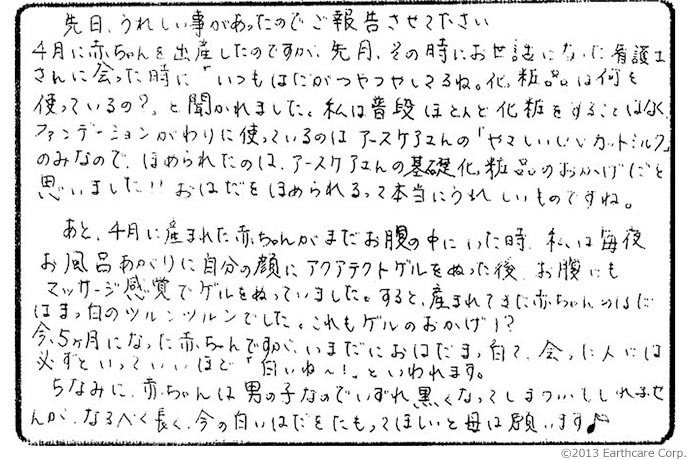 先日、うれしい事があったのでご報告させて下さい
4月に赤ちゃんを出産したのですが、先月、その時にお世話になった看護士
さんに会った時に「いつもはだがつやつやしてるね。化粧品は何を
使っているの?」と聞かれました。私は普段ほとんど化粧をすることはなく
ファンデーションがわりに使っているのはアースケアさんの「やさしいUVカットミルク」
のみなので、ほめられたのは、アースケアさんの基礎化粧品のおかげだと
思いました!!おはだをほめられるって本当にうれしいものですね。
あと、4月に産まれた赤ちゃんがまだお腹の中にいた時、私は毎夜
お風呂あがりに自分の顔にアクアテクトゲルをぬった後、お腹にも
マッサージ感覚でゲルをぬっていました。すると、産まれてきた赤ちゃんのはだ
はまっ白のツルンツルンでした。これもゲルのおかげ!?
今、5ヶ月になった赤ちゃんですが、いまだにおはだまっ白で、会った人には
必ずといっていいほど「白いね〜!」といわれます。
ちなみに、赤ちゃんは男の子なのでいずれ黒くなってしまうかもしれませ
んが、なるべく長く、今の白いはだをたもってほしいと母は願います♪
©2013 Earthcare Corp.